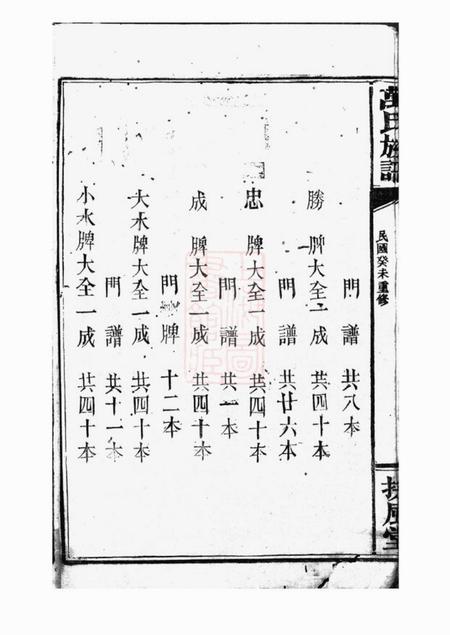 萬氏族譜
民國癸未重修
扶風堂
門譜 共八本
勝牌大全一成 共四十本
門譜 共廿六本
忠牌大全一成 共四十本
門譜 共一本
成牌大全一成 共四十本
門牌 十二本
大木牌大全一成 共四十本
門譜 共十一本
小水牌大全一成 共四十本